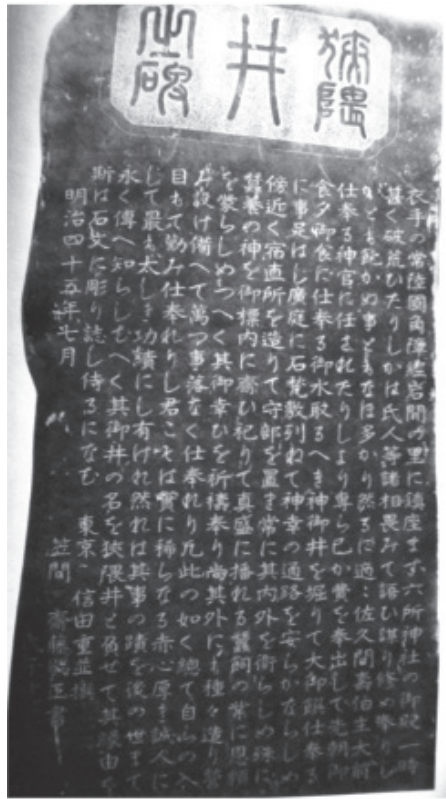 狹隈井之碑
衣手の常陸國 岩間の里に鎮座ます六所神社の御殿一時
甚く破荒ひたりしかは氏人等諸相畏みて語ひ謀り修め奉りし
かとも飽かぬ事ともなほ多かり然るに適々佐久間壽伯主大前
仕奉る神官に任まれたりしより専ら己か費を奉出して先朝御
食夕御食に仕奉る御水取るへき神御井を堀りて大御饌仕奉る
に事足はし廣庭に石甃敷列ねて神幸の通路を安らかならしめ
傍近く宿直所を造りて守部を置き常に其内外を衛らしめ殊に
蠶養の神を御標内に齋ひ祀りて真盛に播れる蠶飼の業に恩頼
を蒙らしめつへく其御幸ひを祈祷奉り尚其外にも種々造り營
み設け備へて萬つ事落なく仕奉れり凢此の如く總て自らの入
目もて勤み仕奉れりし君こそは實に稀らなる赤心厚き誠人に
して最も太しき功績にし有けれ然れは其事の蹟を後の世まて
永く傳へ知らしむへく其御井の名を狹隈井と負せて其縁由を
斯は石文に彫り誌し侍るになむ 東京 信田重並撰
明治四十五年七月 笠間 齋藤 書